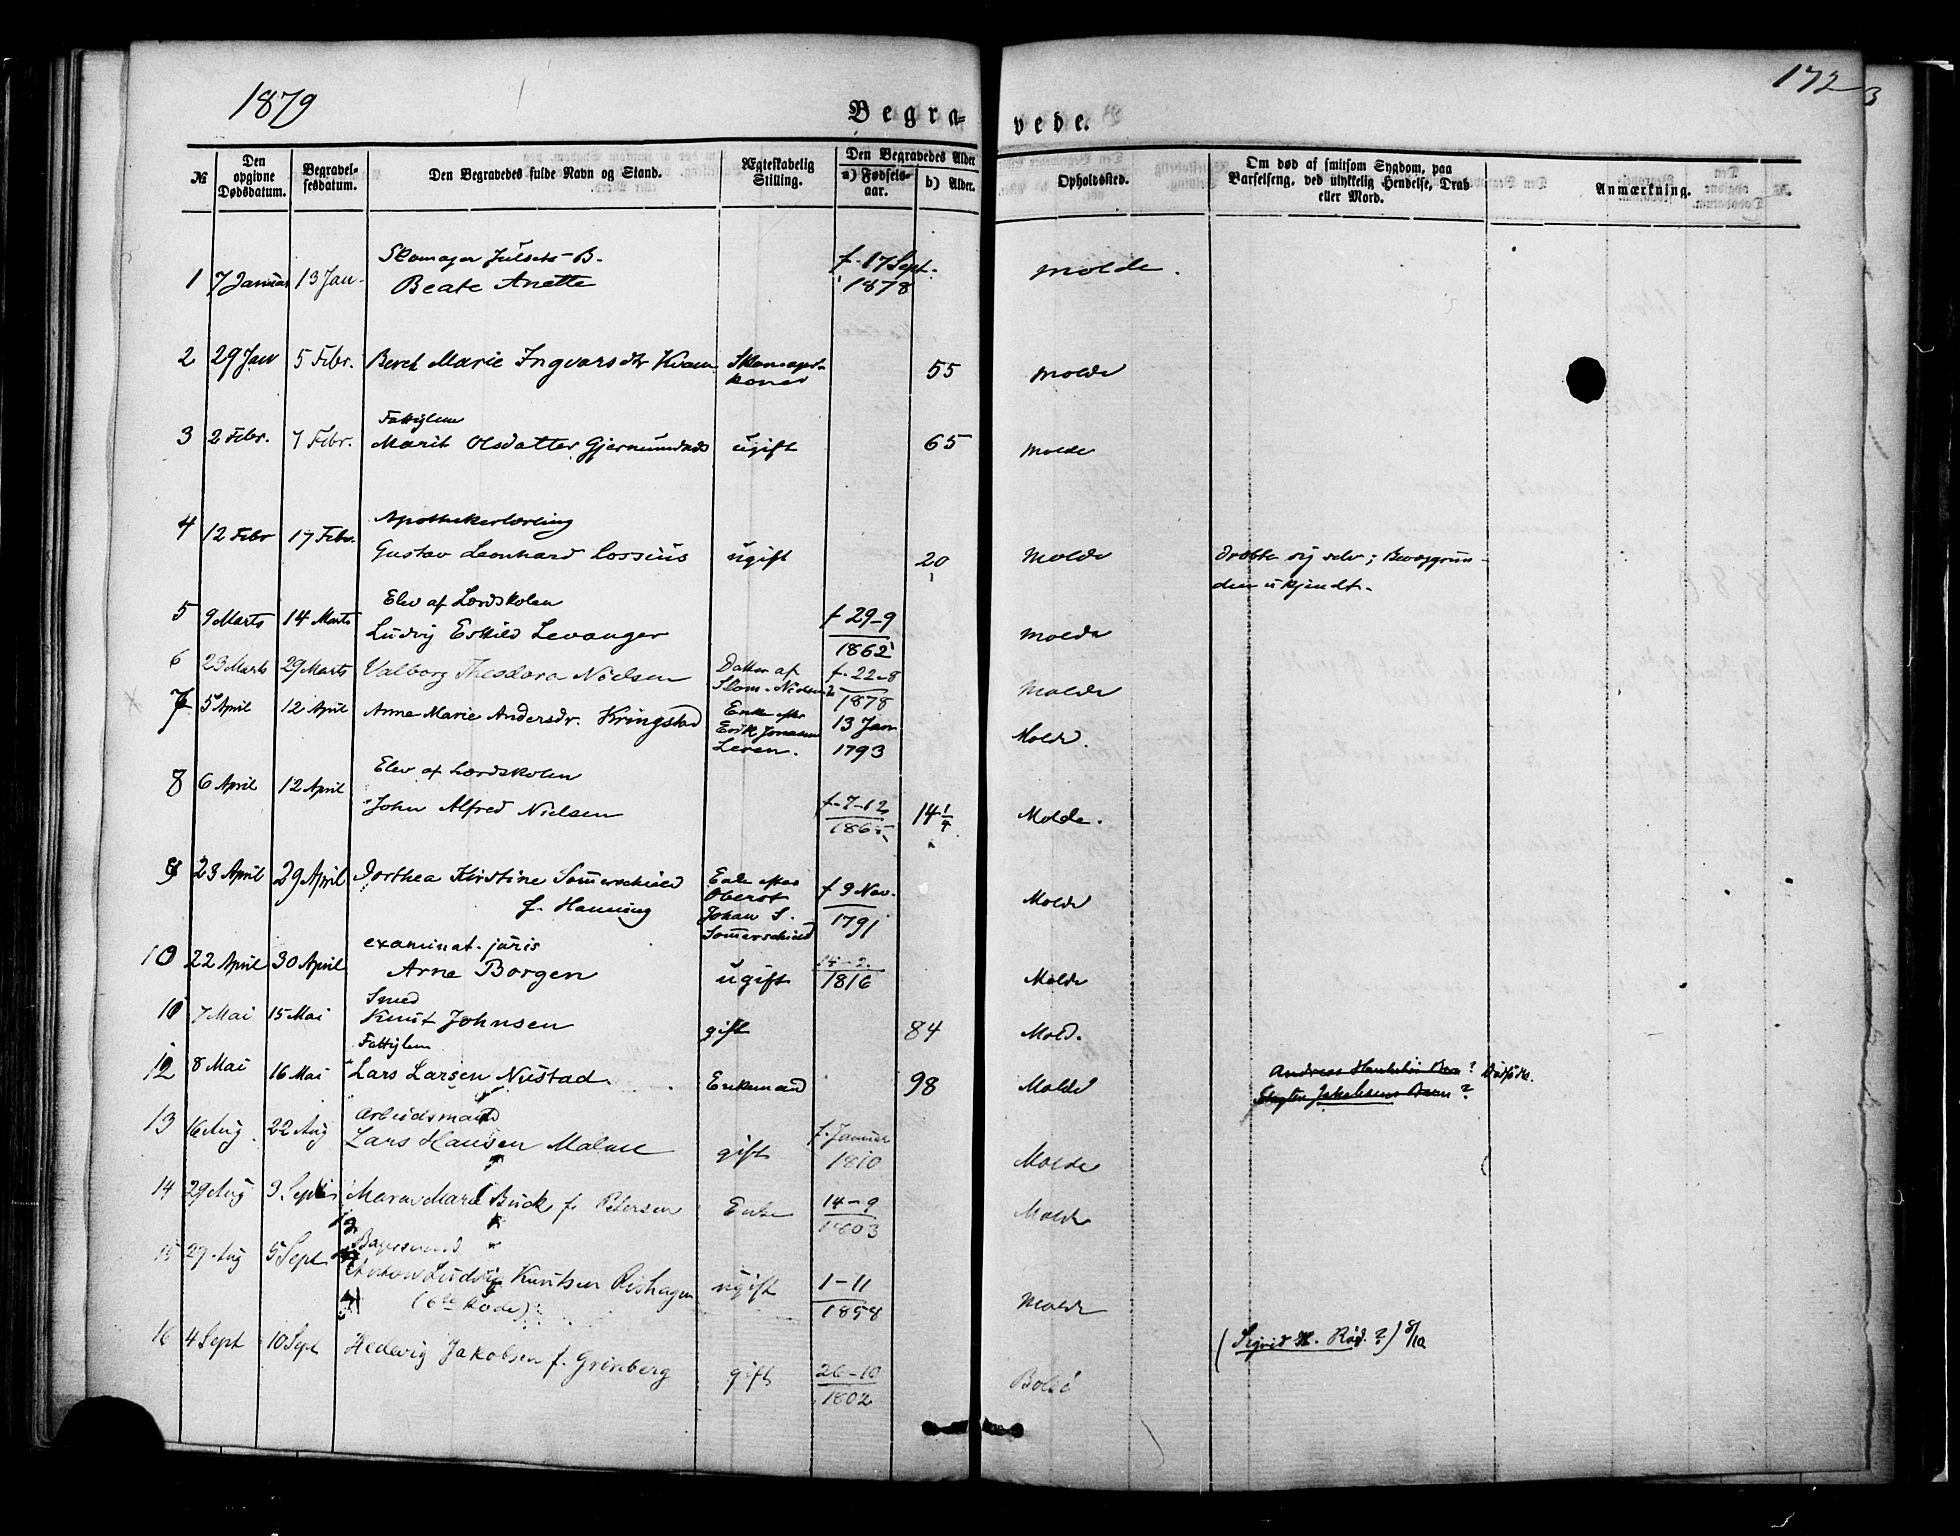 1879
172
3
Begra-
vede.
№
Den opgivne Dødsdatum.
Begravelsesdatum.
Den Begravedes fulde Navn og Stand.
Ægteskabelig Stilling.
Den Begravedes Alder
a) Fødselsaar.
b) Alder.
Opholdssted.
Om død af smitsom Sygdom, paa Barselseng, ved ulykkelig Hendelse, Drab eller Mord.
Anmærkning.
1 7 Januar 13 Jan. Skomager Julsets B. f. 17 Sept. Molde.
Beate Anette 1878
2 29 Jan 5 Febr. Beret Marie Ingvarsdtr Kvam Skomagerkone 55 Molde
Fattiglem
3 2 Febr. 7 Febr. Marit Olsdatter Gjermundnæs ugift 65 Molde
Apothekerlærling
4 12 Febr 17 Febr. Gustav Leonhard Lossius ugift 20 Molde dræbte sig selv; Bevæggrun-
den ukjendt.
Elev af Lærdskolen
5 9 Marts 14 Marts Ludvig Eskild Levanger f. 29-9 1862 Molde
6 23 Marts 29 Marts Valborg Theodora Nielsen Datter af Skom. Nielsen f. 22-8 1878 Molde
7 5 April 12 April Anne Marie Andersdr. Kringstad Enke efter Erik Jonasen 13 Jan 1793 Molde.
Elev af Lærdskolen
8 6 April 12 April John Alfred Nielsen f. 7-12 1865 14 1/4 Molde.
9 23 April 29 April Dorthea Kirstine Somerschield Enke efter Oberst Johan S. Somerschield f 9 Nov. 1791 Molde
f. Hanning
examinat. juris
10 22 April 30 April Arne Borgen ugift 14-2. 1816 Molde
Smed
7 Mai 15 Mai Knut Johnsen gift 84 Mold.
Fattiglem
12 8 Mai 16 Mai Lars Larsen Nustad Enkemand 98 Molde
Andreas Barn? Dødfødte.
Jakobsens Barn?
Arbeidsmand
13 16 Aug 22 Aug Lars Hansen Malme gift f. Januar 1810 Molde
14 29 Aug 3 Sept Maren Marie Buck f. Petersen Enke 14-9 1803 Molde
Bagersvend
15 29 Aug 5 Sept Anton Ludvig Knutsen Rishagen ugift 1-11 1858 Molde
(6te Rode)
16 4 Sept 10 Sept Hedevig Jakobsen f. Grönberg gift 26-10 1802 Bolsö
(Sigrid H. Röd?) 8/10